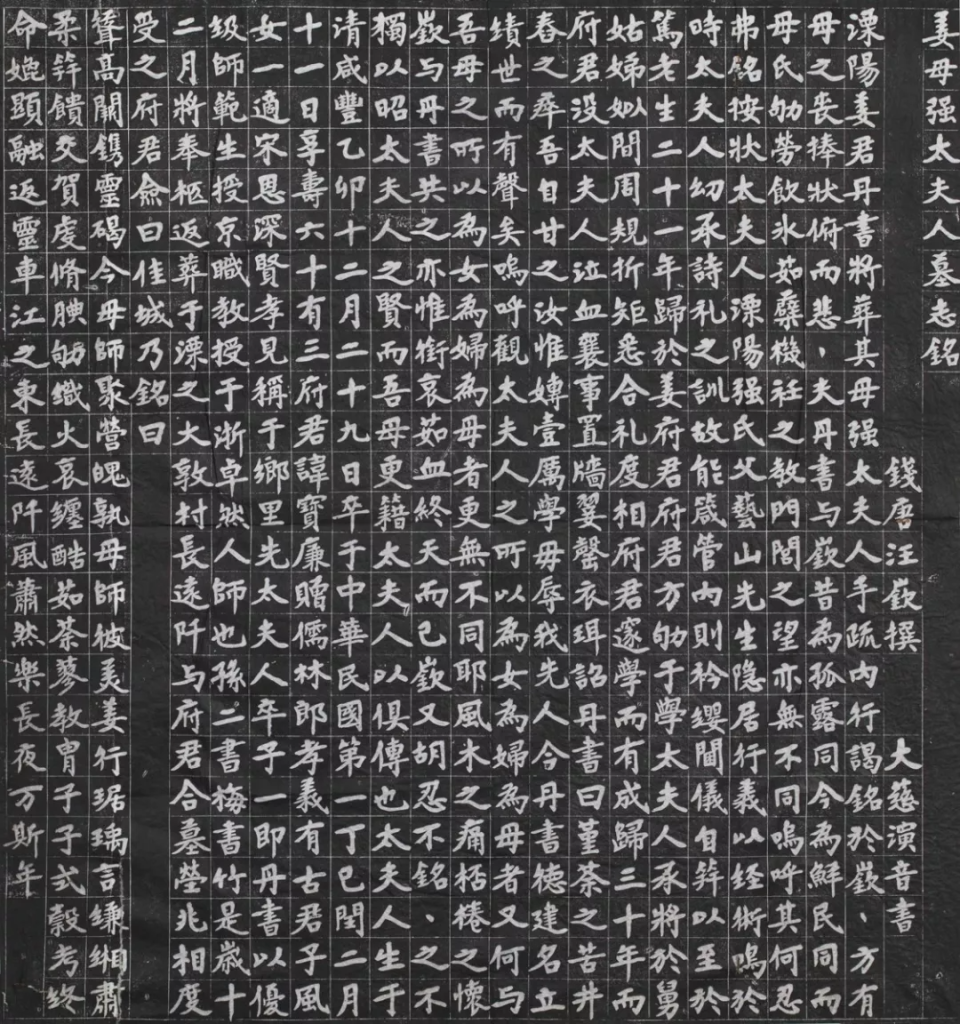 姜母强太夫人墓志銘
錢唐汪嶔撰 大慈演音書
溧陽姜君丹書將葬其母强太夫人手疏內行謁銘於嶔、方有
母之喪捧狀俯而悲、夫丹書与嶔昔為孤露同今為鮮民同而
母氏劬勞飲冰茹蘖機社之教門閭之望亦無不同嗚呼其何忍
弗銘按狀太夫人溧陽强氏父藝山先生隐居行義以经術鳴於
時太夫人幼承詩礼之訓故能箴管內則衿纓閫儀自笄以至於
篤老生二十一年歸於姜府君府君方劬于學太夫人承將於舅
姑婦姒間周規折矩悉合礼度相府君邃學而有成歸三十年而
府君没太夫人泣血襄事置牆翣罄衣珥詔丹書曰堇荼之苦井
舂之瘁吾自甘之汝惟嫥壹厲學毋辱我先人今丹書徳建名立
績世而有聲矣嗚呼觀太夫人之所以為女為婦為母者又何与
吾母之所以為女為婦為母者更無不同耶風木之痛桮棬之懷
嶔与丹書共之亦惟銜哀茹血終天而已嶔又胡忍不銘、之不
獨以昭太夫人之賢而吾母更籍太夫人以俱傳也太夫人生于
清咸豐乙卯十二月二十九日卒于中華民國第一丁巳閏二月
十一日享壽六十有三府君諱寶廉贈儒林郎孝義有古君子風
女一適宋恩深賢孝見稱于鄉里先太夫人卒子一即丹書以優
級師範生授京職教授于淅卓然人師也孫二書梅書竹是歲十
二月將奉柩返葬于溧之大敦村長遠阡与府君合墓塋兆相度
受之府君僉曰佳城乃銘曰
聳高闕鐫靈碣今母師聚營魄孰母師彼美姜行琚瑀言縑緗肅
柔笄饋交賀虔脩腆劬織火哀纏酷茹荼蓼教胄子子式穀考終
命媲顕融返靈車江之東長遠阡風蕭然樂長夜万斯年